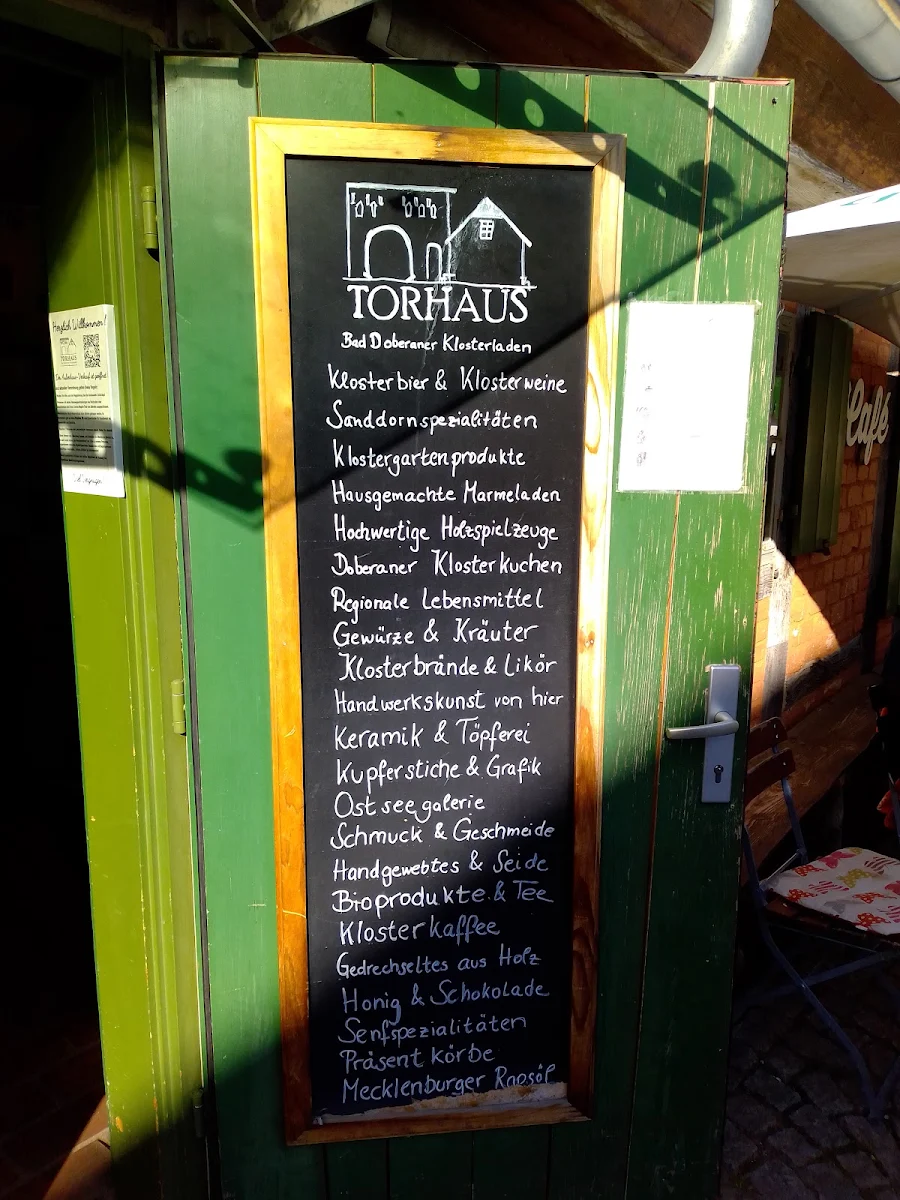 Herzlich Willkommen!
TORHAUS
TORHAUS
Bad Doberaner Klosterladen
Klosterbier & Klosterweine
Sanddornspezialitäten
Klostergartenprodukte
Hausgemachte Marmeladen
Hochwertige Holzspielzeuge
Doberaner Klosterkuchen
Regionale Lebensmittel
Gewürze & Kräuter
Klosterbrände & Likör
Handwerkskunst von hier
Keramik & Töpferei
Kupferstiche & Grafik
Ostseegalerie
Schmuck & Geschmeide
Handgewebtes & Seide
Bioprodukte & Tee
Klosterkaffee
Gedrechseltes aus Holz
Honig & Schokolade
Senfspezialitäten
Präsentkörbe
Mecklenburger Rapsöl
Café